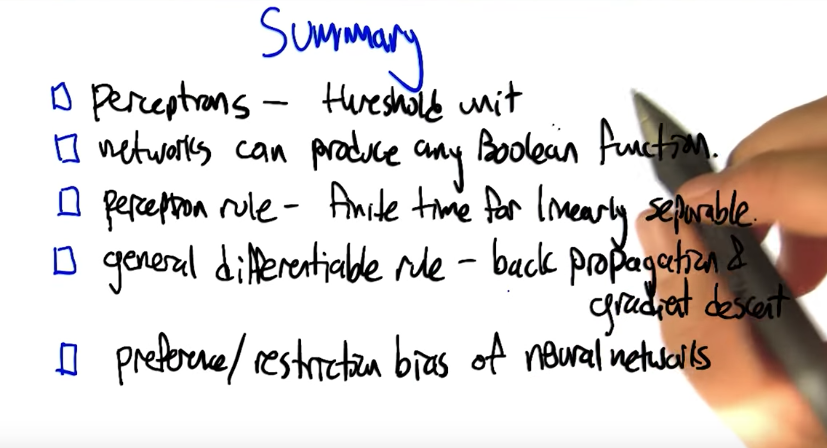 Summary
perceptrons - threshold unit
networks can produce any Boolean function.
perceptron rule - finite time for linearly separable.
general differentiable rule - back propagation &
gradient descent
preference/restriction bias of neural networks